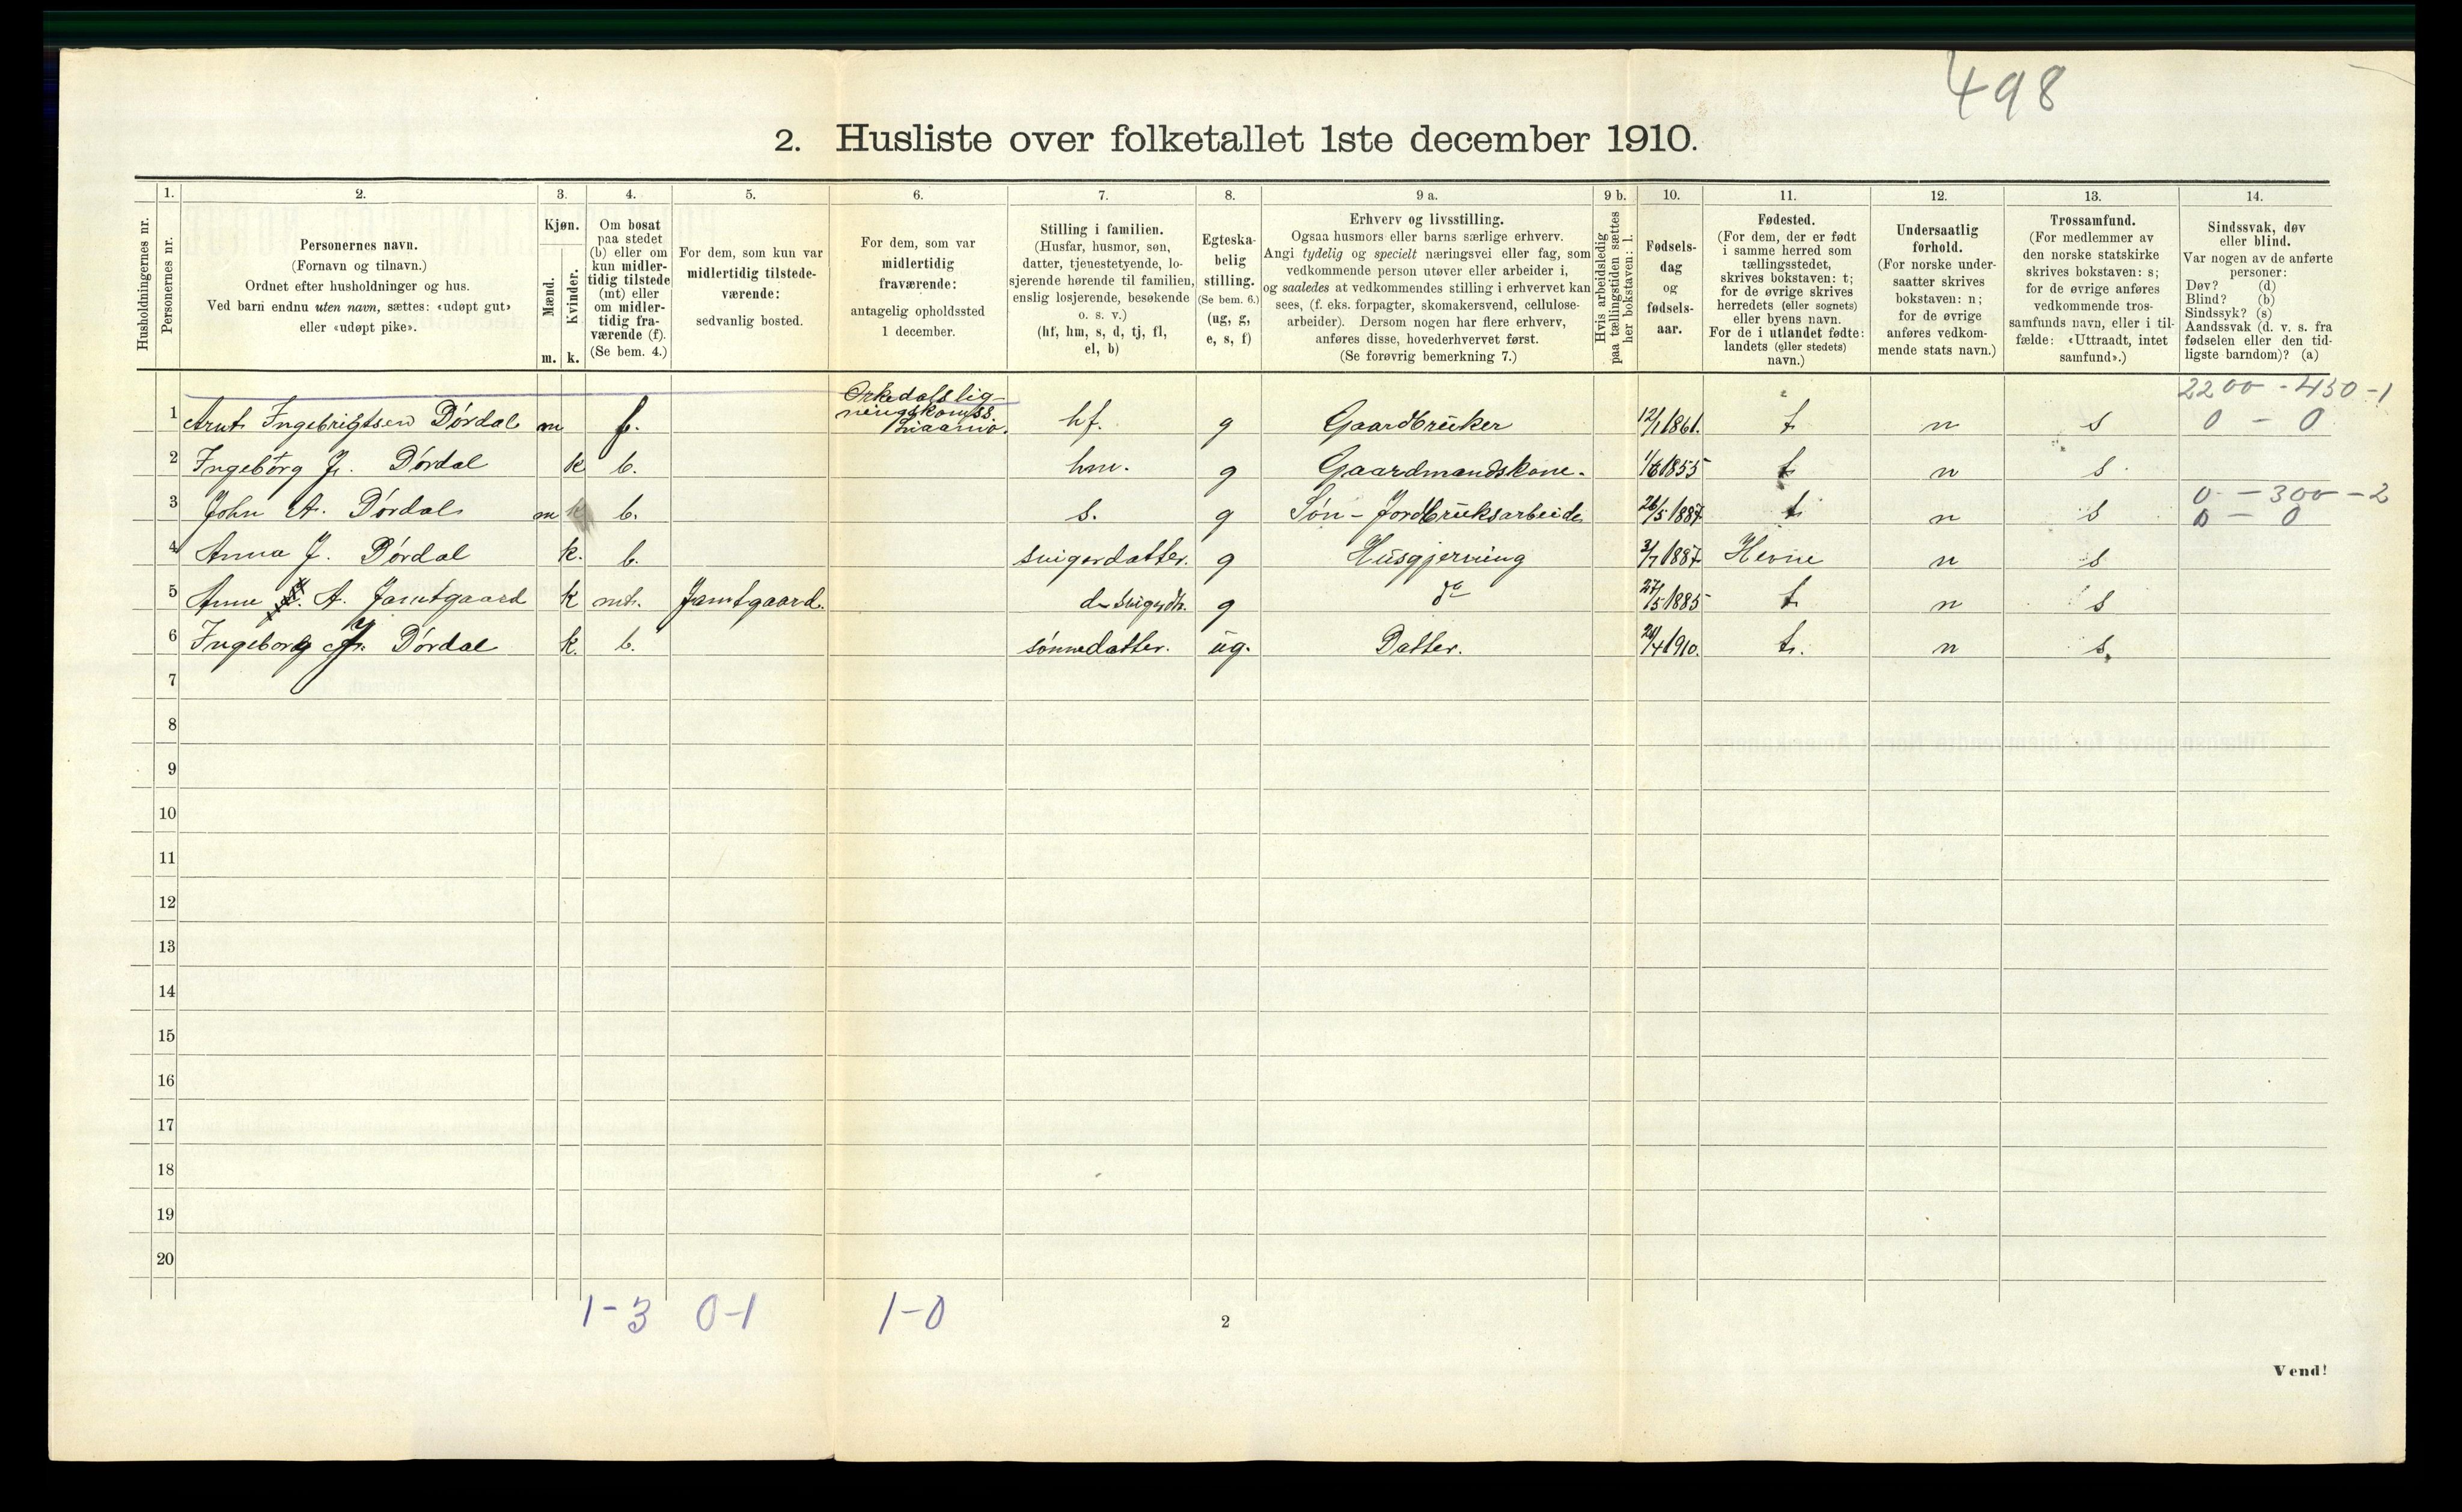 498
2. Husliste over folketallet 1ste december 1910.
1. 2. 3. 4. 5. 6. 7. 8. 9 a. 9 b. 10. 11. 12. 13. 14.
Husholdningernes nr.
Personernes nr.
Personernes navn.
(Fornavn og tilnavn.)
Ordnet efter husholdninger og hus.
Ved barn endnu uten navn, sættes: «udøpt gut»
eller «udøpt pike».
Kjøn.
Mænd.
Kvinder.
m. k.
Om bosat
paa stedet
(b) eller om
kun midler-
tidig tilstede
(mt) eller
om midler-
tidig fra-
værende (f).
(Se bem. 4.)
For dem, som kun var
midlertidig tilstede-
værende:
sedvanlig bosted.
For dem, som var
midlertidig
fraværende:
antagelig opholdssted
1 december.
Stilling i familien.
(Husfar, husmor, søn,
datter, tjenestetyende, lo-
sjerende hørende til familien,
enslig losjerende, besøkende
o. s. v.)
(hf, hm, s, d, tj, fl,
el, b)
Egteska-
belig
stilling.
(Se bem. 6.)
(ug, g,
e, s, f)
Erhverv og livsstilling.
Ogsaa husmors eller barns særlige erhverv.
Angi tydelig og specielt næringsvei eller fag, som
vedkommende person utøver eller arbeider i,
og saaledes at vedkommendes stilling i erhvervet kan
sees, (f. eks. forpagter, skomakersvend, cellulose-
arbeider). Dersom nogen har flere erhverv,
anføres disse, hovederhvervet først.
(Se forøvrig bemerkning 7.)
Hvis arbeidsledig
paa tællingstiden sættes
her bokstaven: l.
Fødsels-
dag
og
fødsels-
aar.
Fødested.
(For dem, der er født
i samme herred som
tællingsstedet,
skrives bokstaven: t;
for de øvrige skrives
herredets (eller sognets)
eller byens navn.
For de i utlandet fødte:
landets (eller stedets)
navn.)
Undersaatlig
forhold.
(For norske under-
saatter skrives
bokstaven: n;
for de øvrige
anføres vedkom-
mende stats navn.)
Trossamfund.
(For medlemmer av
den norske statskirke
skrives bokstaven: s;
for de øvrige anføres
vedkommende tros-
samfunds navn, eller i til-
fælde: «Uttraadt, intet
samfund».)
Sindssvak, døv
eller blind.
Var nogen av de anførte
personer:
Døv? (d)
Blind? (b)
Sindssyk? (s)
Aandssvak (d. v. s. fra
fødselen eller den tid-
ligste barndom)? (a)
Orkedalslig-
2200 - 450 - 1
1 Arnt Ingebrigtsen Dørdal m f. hf. g Gaardbruker 12/1 1861. t n s 0 - 0
2 Ingeborg J. Dørdal k b. hm. g Gaardmandskone. 1855 t n s
0 - 300 - 2
3 John A. Dørdal m b. s. g Søn - Jordbruksarbeide 26/5 1887 t n s 0 - 0
4 Anna J. Dørdal k. b. svigerdatter. g Husgjerning 3/7 1887 Hevne n s
5 Anne A. Jamtgaard k mt. Jamtgaard. g do 27/5 1885 t n s
6 Ingeborg J. Dørdal k. b. sønnedatter. ug. Datter. 1910. t. n s.
7
8
9
10
11
12
13
14
15
16
17
18
19
20
1-3 0-1 1-0
2
Vend!